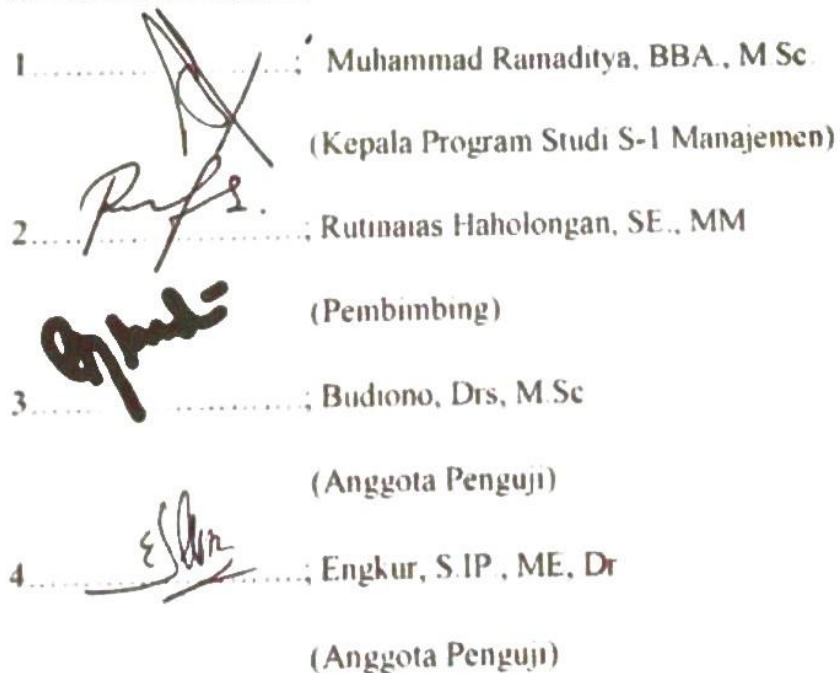 1..............................; Muhammad Ramaditya, BBA., M.Sc.
(Kepala Program Studi S-1 Manajemen)
2..............................; Rutinaias Haholongan, SE., MM
(Pembimbing)
3..............................; Budiono, Drs, M.Sc
(Anggota Penguji)
4..............................; Engkur, S.IP., ME, Dr
(Anggota Penguji)